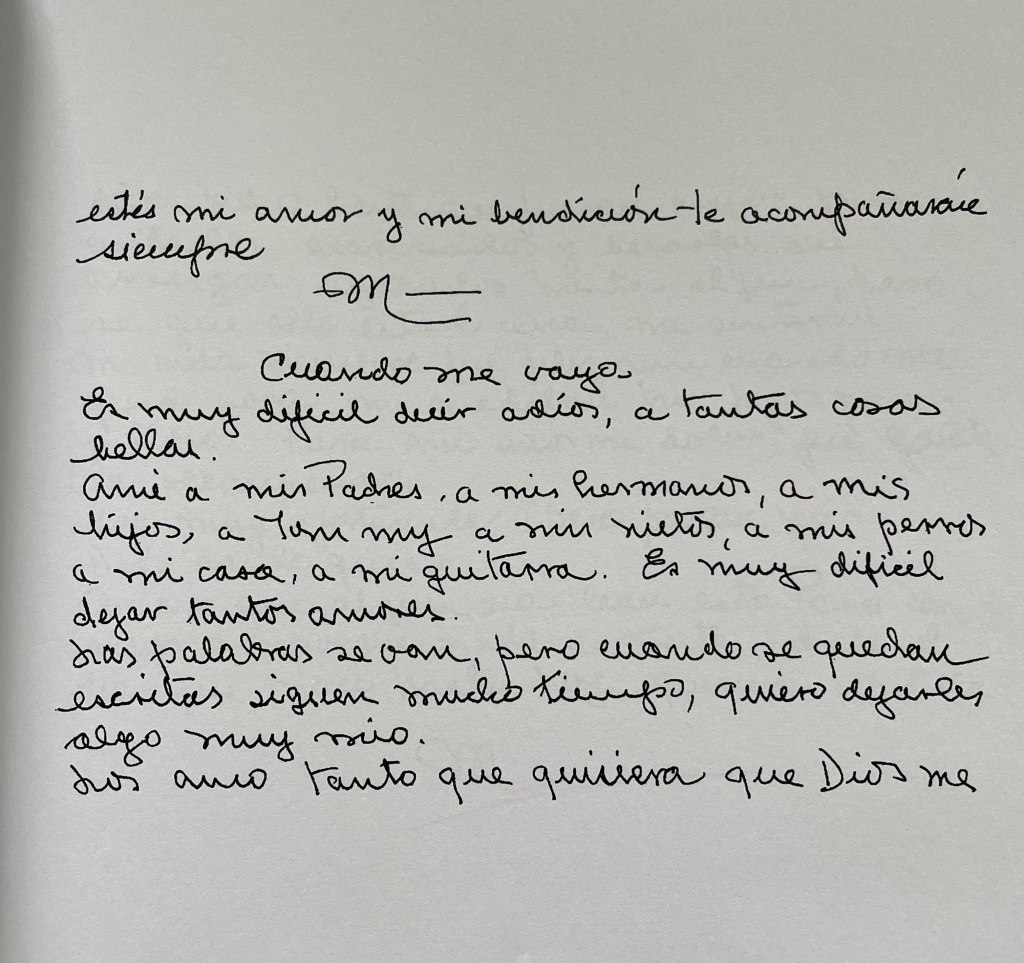 estés mi amor y mi bendición te acompañarán
siempre
M
Cuando me vaya.
Es muy dificil decir adíos, a tantas cosas
bellas.
Amé a mis Padres, a mis hermanos, a mis
hijos, a Tommy a mis nietos, a mis perros
a mi casa, a mi guitarra. Es muy dificil
dejar tantos amores.
Las palabras se van, pero cuando se quedan
escritas siguen mucho tiempo, quiero dejarles
algo muy mío.
Los amo tanto que quisiera que Dios me